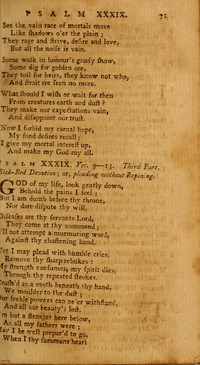 PSALM XXXIX. 71
See the vain race of mortals move
Like shadows o'er the plain;
They rage and strive, desire and love,
But all the noise is vain.
Some walk in honour's gaudy show,
Some dig for golden ore,
They toil for heirs, they know not who,
And strait are seen no more.
What should I wish or wait for then
From creatures earth and dust?
They make our expectations vain,
And disappoint our trust.
Now I forbid my carnal hope,
My fond desires recall;
I give my mortal interest up,
And make my God my all.
PSALM XXXIX. Ver. 9—13. Third Part.
Sick-Bed Devotion; or, pleading without Repining.
GOD of my life, look gently down,
Behold the pains I feel;
But I am dumb before thy throne,
Nor dare dispute thy will.
Diseases are thy servants Lord,
They come at thy command;
I'll not attempt a murmuring word,
Against thy chastening hand.
Yet I may plead with humble cries,
Remove thy sharp rebukes:
My strength consumes, my spirit dies,
Through thy repeated strokes.
Crush'd as a moth beneath thy hand,
We moulder to the dust;
Our feeble powers can ne'er withstand,
And all our beauty's lost.
I'm but a stranger here below,
As all my fathers were;
May I be well prepar'd to go,
When I thy summons hear!